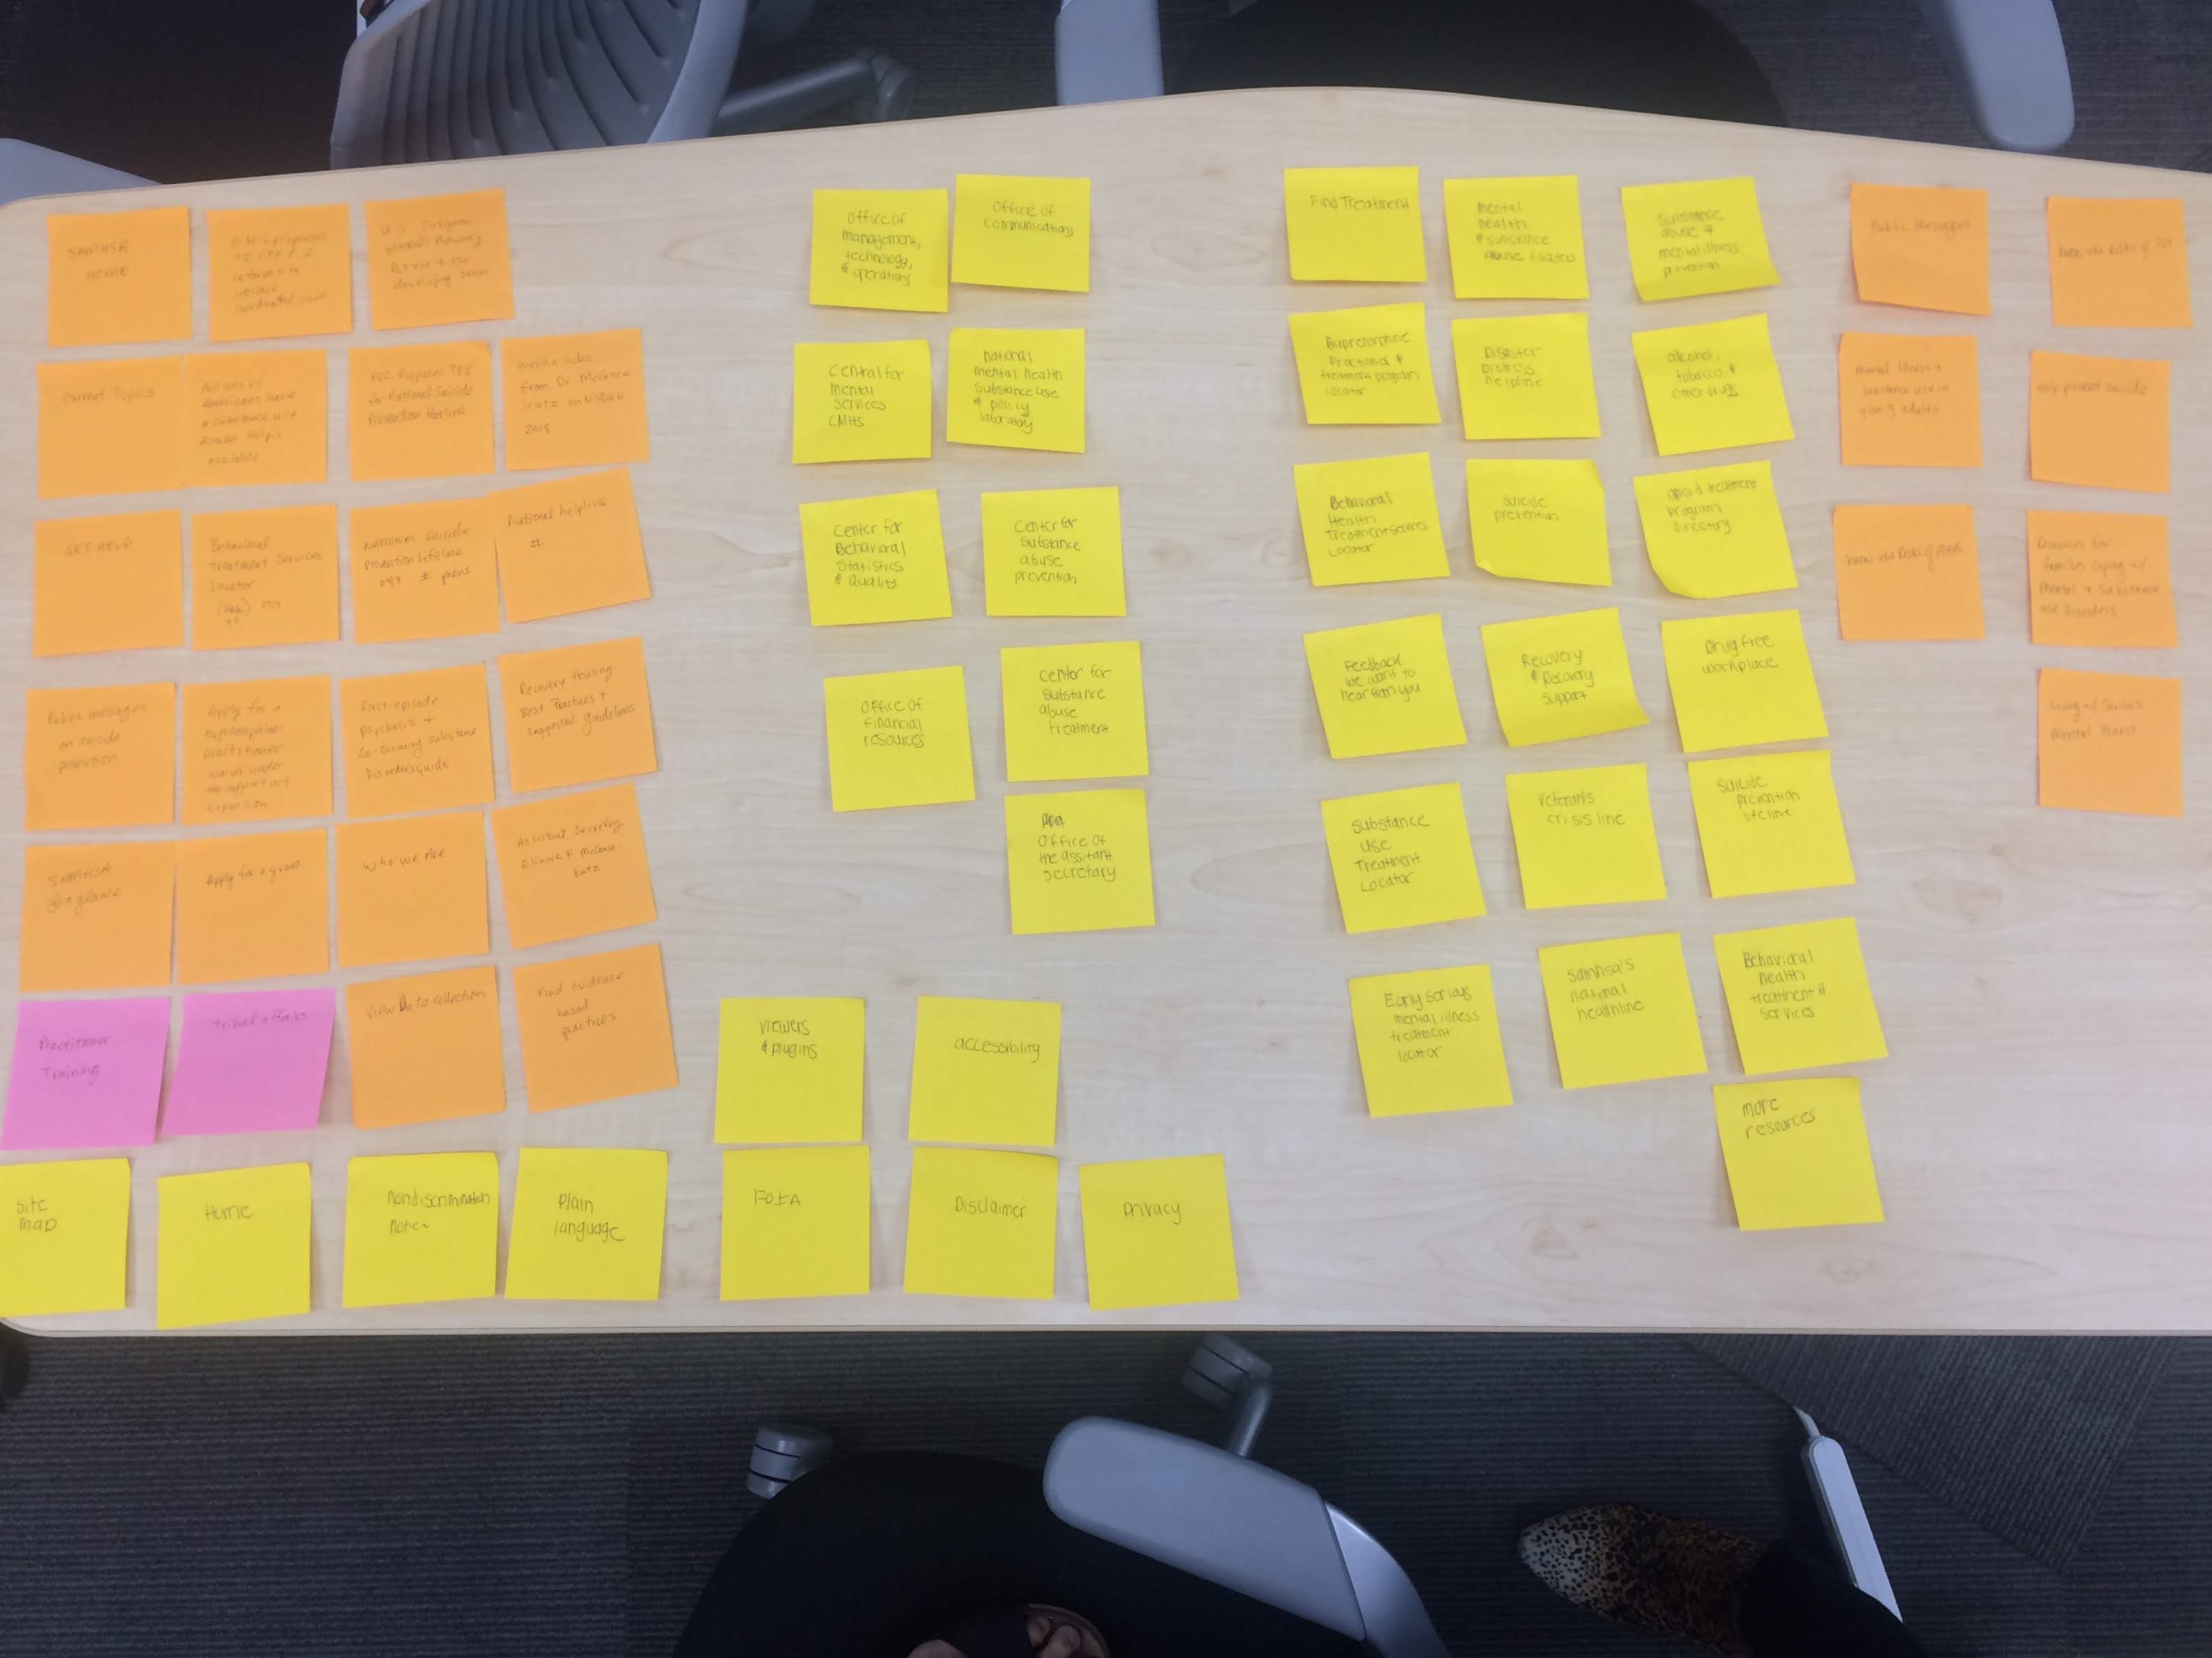 SAMHSA
HOME
developing brain
Current Topics
Millions of
Americans have
a substance use
disorder Help is
available
FCC Proposes 988
for National Suicide
Prevention Hotline
video
from Dr. McCance
Katz on NSDUH
2018
GET HELP
Behavioral
Treatment Services
Locator
(link)
National Suicide
Prevention Lifeline
24/7 # phone
National helpline
#
Public messages
on suicide
Apply for a
practitioner
waiver under
the support act
expansion
First-episode
psychosis +
Co-occuring substance
Disorders Guide
Recovery Housing
Best Practices +
Suggested guidelines
SAMHSA
@ a glance
Apply for a grant
Who we Are
Assistant Secretary
Elinore F. McCance-
Katz
Practitioner
Training
tribal affairs
View Data collections
Find evidence
based
practices
Site
map
Home
Nondiscrimination
notice
Plain
language
Office of
management,
technology,
& operations
Office of
Communications
Central for
mental
services
CMHS
national
mental health
Substance use
& policy
laboratory
Center for
Behavioral
Statistics
& quality
Center for
Substance
abuse
prevention
Office of
Financial
resources
Center for
Substance
abuse
treatment
Office of
the assitant
secretary
viewers
& plugins
accessibility
FOIA
Disclaimer
privacy
Find Treatment
mental
health
& substance
abuse locators
Substance
abuse &
mental illness
prevention
Buprenorphine
Practional &
treatment program
locator
Disaster
Distress
helpline
alcohol,
tobacco, &
other drugs
Behavioral
Health
Treatment services
Locator
suicide
prevention
opioid treatment
program
directory
Feedback
we want to
hear from you
Recovery
& Recovery
Support
Drug free
workplace
Substance
use
Treatment
Locator
Veteran's
crisis line
Suicide
prevention
lifeline
Early serious
mental illness
treatment
locator
Samhsa's
national
healthline
Behavioral
health
treatment &
services
more
resources
Public Messages
Mental Illness +
substance use in
young adults
Know the Risks of
Know the Risks of
Help prevent suicide
Resources for
families coping w/
Mental + Substance
use Disorders
Living w/ Serious
Mental Illness